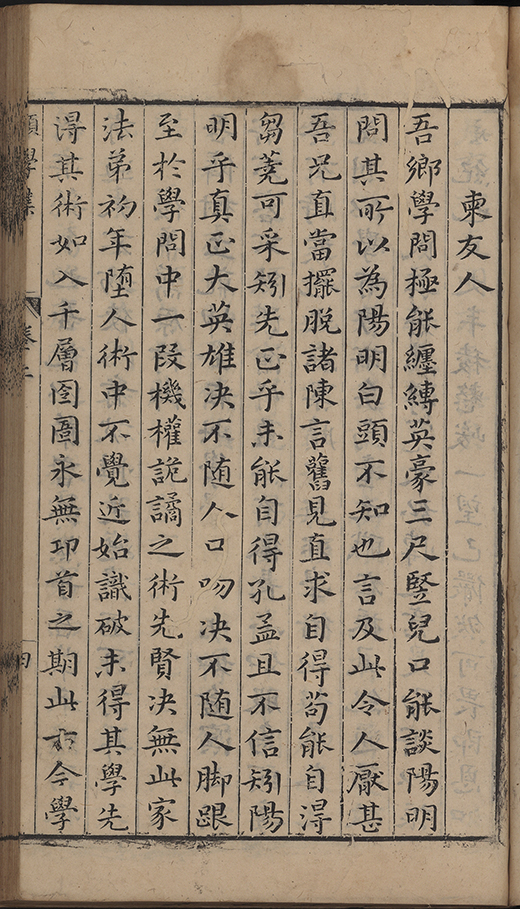 柬友人
吾鄉學問極能纏縛英豪三尺豎兒口能談陽明
問其所以為陽明白頭不知也言及此令人厭甚
吾兄直當擺脫諸陳言舊見直求自得苟能自得
芻蕘可采矧先正乎未能自得孔孟且不信矧陽
明乎真正大英雄决不随人口吻决不随人脚跟
至於學問中一段機權詭譎之術先賢决無此家
法弟初年墮人術中不覺近始識破未得其學先
得其術如入千層囹圄永無卬首之期此古今學
學集
卷二